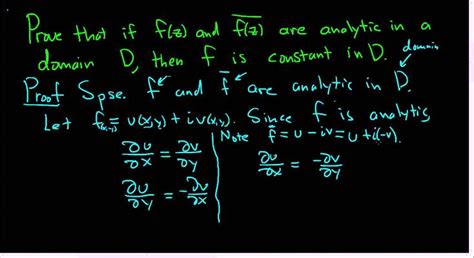 Prove that if f(z) and \overline{f(z)} are analytic in a
domain D, then f is constant in D.
domain
Proof Spse. f and \overline{f} are analytic in D.
Let f(x,y) = u(x,y) + iv(x,y). Since f is analytic,
Note \overline{f} = u - iv = u + i(-v).
∂u/∂x = ∂v/∂y
∂u/∂x = -∂v/∂y
∂u/∂y = -∂v/∂x